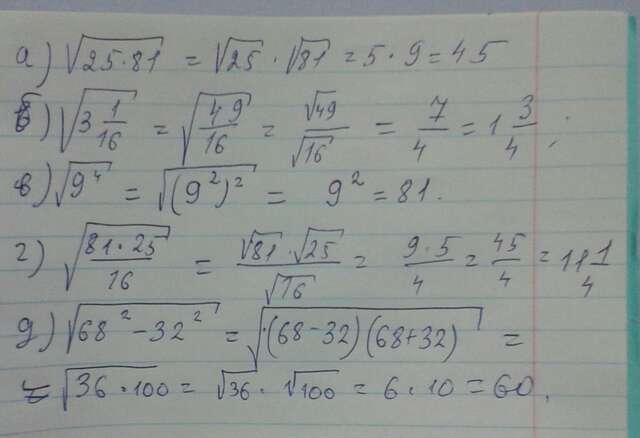 а) √(25·81) = √25 · √81 = 5 · 9 = 45
б) √(3 1/16) = √(49/16) = √49/√16 = 7/4 = 1 3/4 ;
в) √(9⁴) = √((9²)²) = 9² = 81.
г) √((81·25)/16) = (√81 · √25)/√16 = (9·5)/4 = 45/4 = 11 1/4
д) √(68² - 32²) = √((68-32)(68+32)) =
= √(36·100) = √36 · √100 = 6 · 10 = 60.